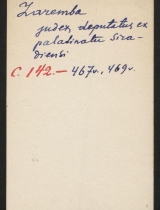 Zaremba
judex, deputatus ex
palatinatu Sira-
diensi
C. 142.— 467v., 469v.